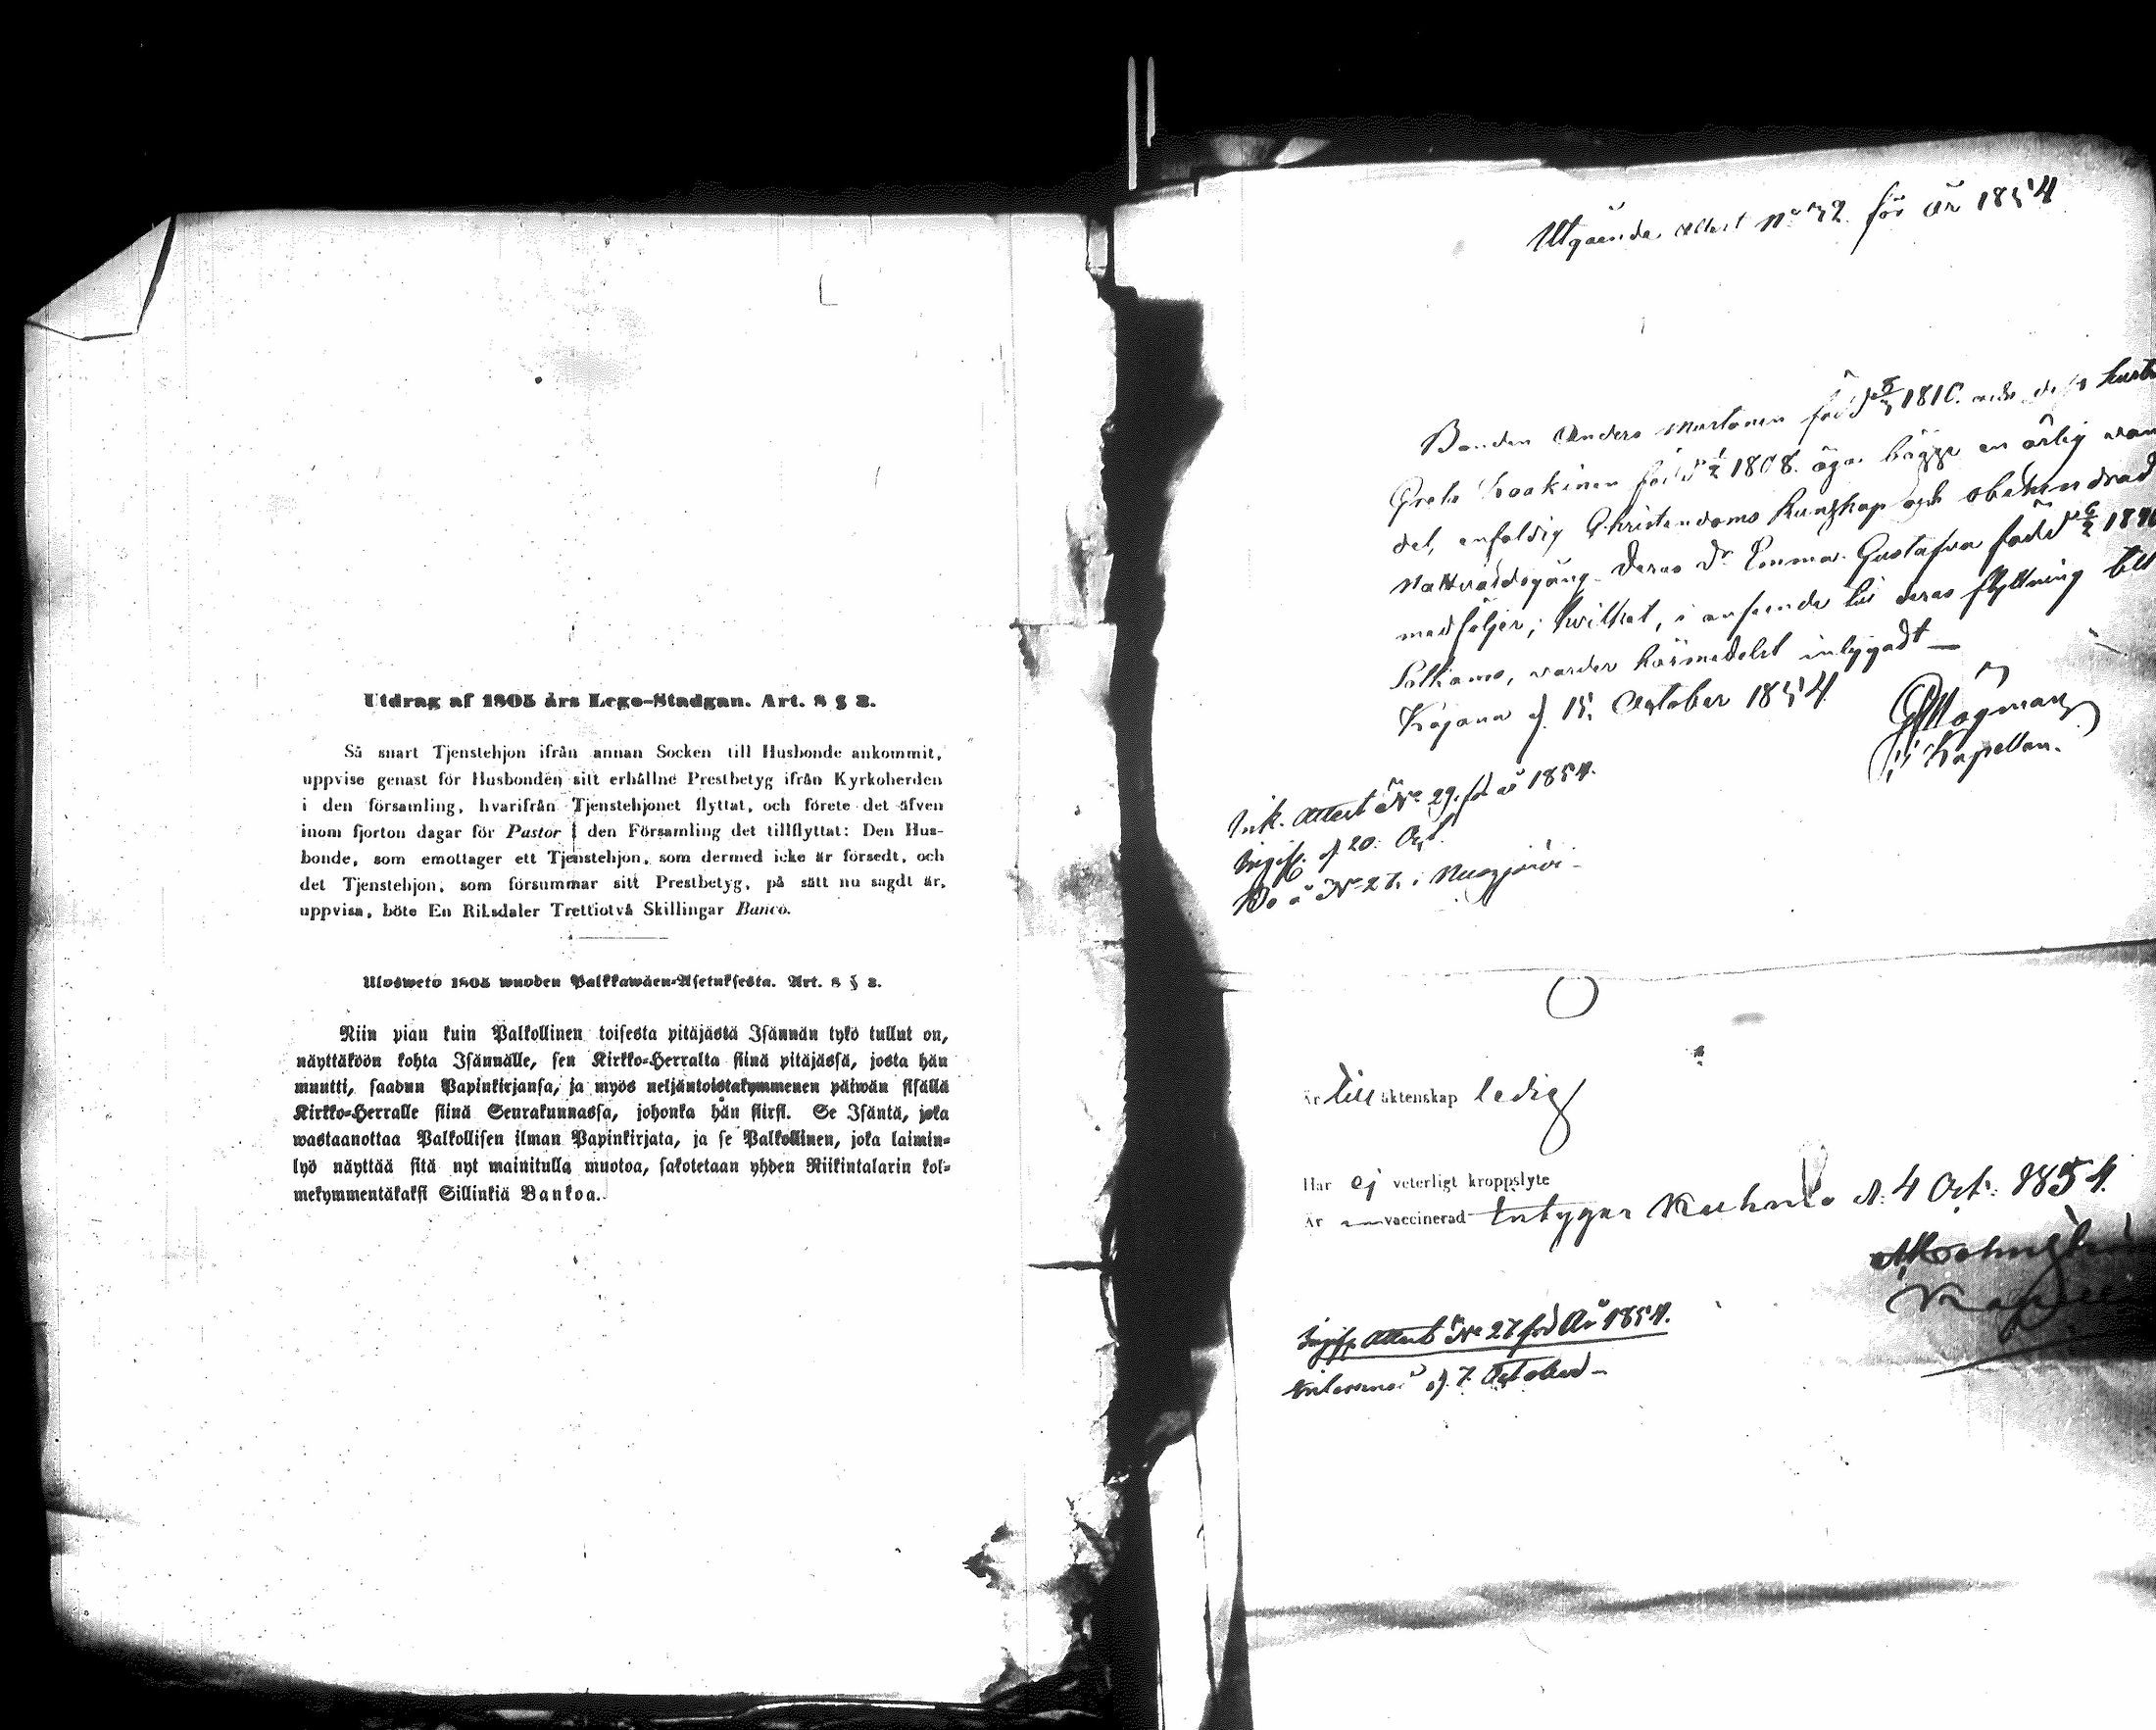 Utdrag af 1805 års Lego-Stadgan. Art. 8 § 2.
Så snart Tjenstehjon ifrån annan Socken till Husbonde ankommit,
uppvise genast för Husbonden sitt erhållne Prestbetyg ifrån Kyrkoherden
i den församling, hvarifrån Tjenstehjonet flyttat, och förete det äfven
inom fjorton dagar för Pastor i den Församling det tillflyttat: Den Hus-
bonde, som emottager ett Tjenstehjon, som dermed icke är försedt, och
det Tjenstehjon, som försummar sitt Prestbetyg, på sätt nu sagdt är,
uppvisa, böte En Riksdaler Trettiotvå Skillingar Banco.
Ulosweto 1805 wuoden Palkkawäen-Asetuksesta. Art. 8 § 2.
Niin pian kuin Palkollinen toisesta pitäjästä Isännän tykö tullut on,
näyttäköön kohta Isännälle, sen Kirkko-Herralta siinä pitäjässä, josta hän
muutti, saadun Papinkirjansa, ja myös neljäntoistakymmenen päiwän sisällä
Kirkko-Herralle siinä Seurakunnassa, johonka hän siirsi. Se Isäntä, joka
wastaanottaa Palkollisen ilman Papinkirjata, ja se Palkollinen, joka laimin-
lyö näyttää sitä nyt mainitulla muotoa, sakotetaan yhden Riikintalarin kol-
mekymmentäkaksi Sillinkiä Bankoa.
Utgående Attest No 32 för år 1854
Bonden Anders född 1810. och dess
Greta född 1808. äga bägge en ärlig
det, enfaldig Christendoms kunskap och obehindrad
Nattvardsgång. Deras Dr Emma Gustafva född
medföljer; hvilket, i anseende till deras flyttning till
Sotkamo, varder härmedelst intygadt
Kajana d. 15 October 1854
Kapellan.
Ink. Attest No 29. för år 1854.
d. 20. Oct.
No 27. i
Är till äktenskap ledig
Har ej veterligt kroppslyte
Är vaccinerad intygar Kuhmo d. 4 Oct. 1854.
Attest No 27 för År 1854.
d. 7. October